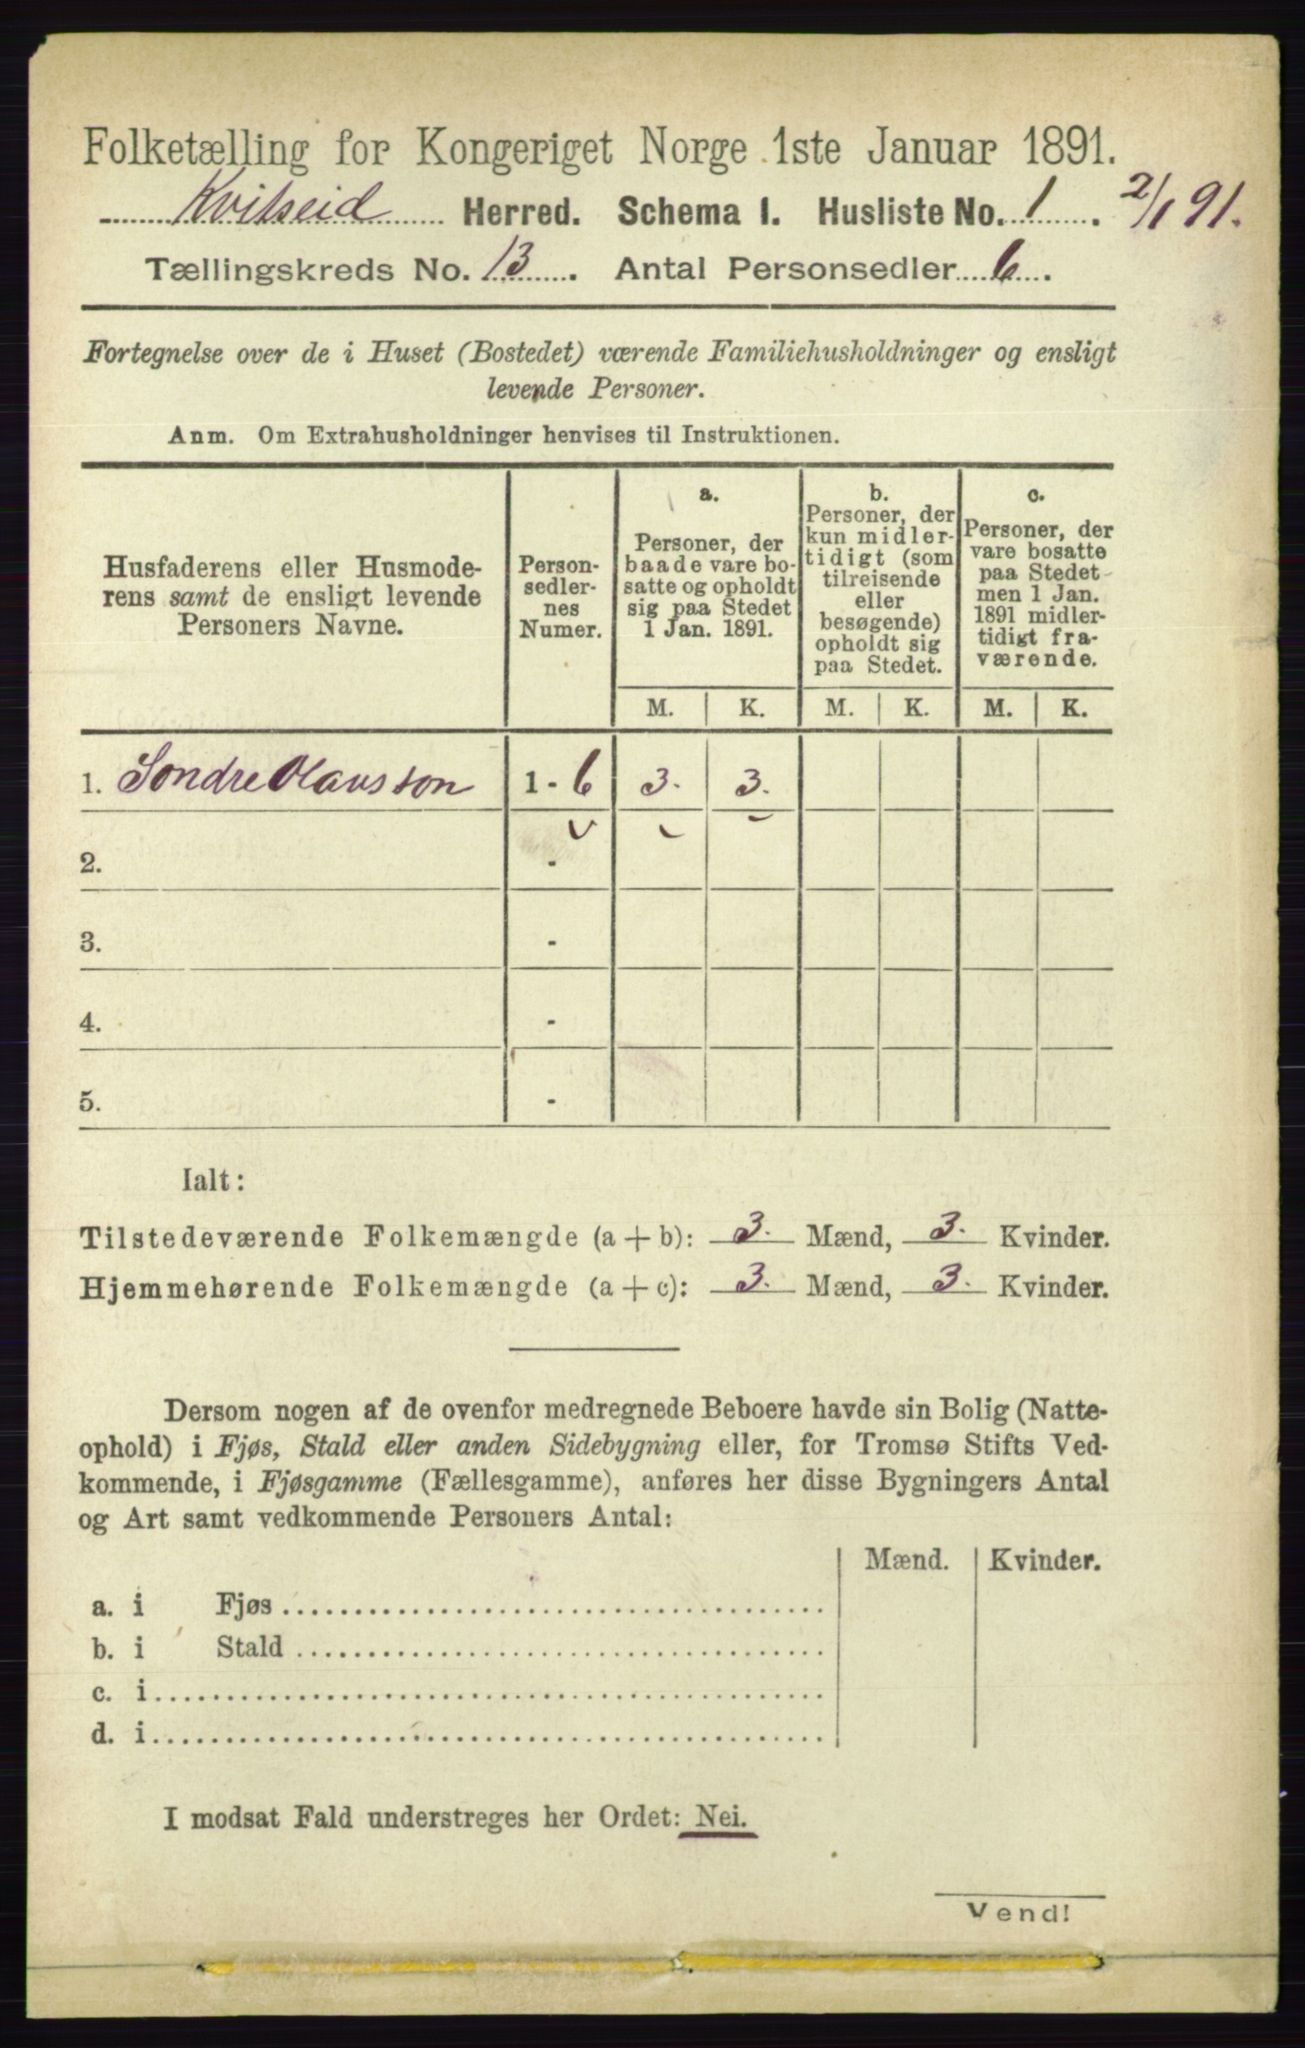 Folketælling for Kongeriget Norge 1ste Januar 1891.
Kvitseid Herred. Schema I. Husliste No. 1. 2/1 91.
Tællingskreds No. 13. Antal Personsedler 6.
Fortegnelse over de i Huset (Bostedet) værende Familiehusholdninger og ensligt
levende Personer.
Anm. Om Extrahusholdninger henvises til Instruktionen.
Husfaderens eller Husmode-
rens samt de ensligt levende
Personers Navne.
Person-
sedler-
nes
Numer.
a.
Personer, der
baade vare bo-
satte og opholdt
sig paa Stedet
1 Jan. 1891.
b.
Personer, der
kun midler-
tidigt (som
tilreisende
eller
besøgende)
opholdt sig
paa Stedet.
c.
Personer, der
vare bosatte
paa Stedet
men 1 Jan.
1891 midler-
tidigt fra-
værende.
M. K. M. K. M. K.
1. Sondre Olavsson 1 - 6 3. 3.
2. -
3. -
4. -
5. -
Ialt:
Tilstedeværende Folkemængde (a + b): 3. Mænd, 3. Kvinder.
Hjemmehørende Folkemængde (a + c): 3. Mænd, 3. Kvinder.
Dersom nogen af de ovenfor medregnede Beboere havde sin Bolig (Natte-
ophold) i Fjøs, Stald eller anden Sidebygning eller, for Tromsø Stifts Ved-
kommende, i Fjøsgamme (Fællesgamme), anføres her disse Bygningers Antal
og Art samt vedkommende Personers Antal:
Mænd. Kvinder.
a. i Fjøs
b. i Stald
c. i
d. i
I modsat Fald understreges her Ordet: Nei.
Vend!